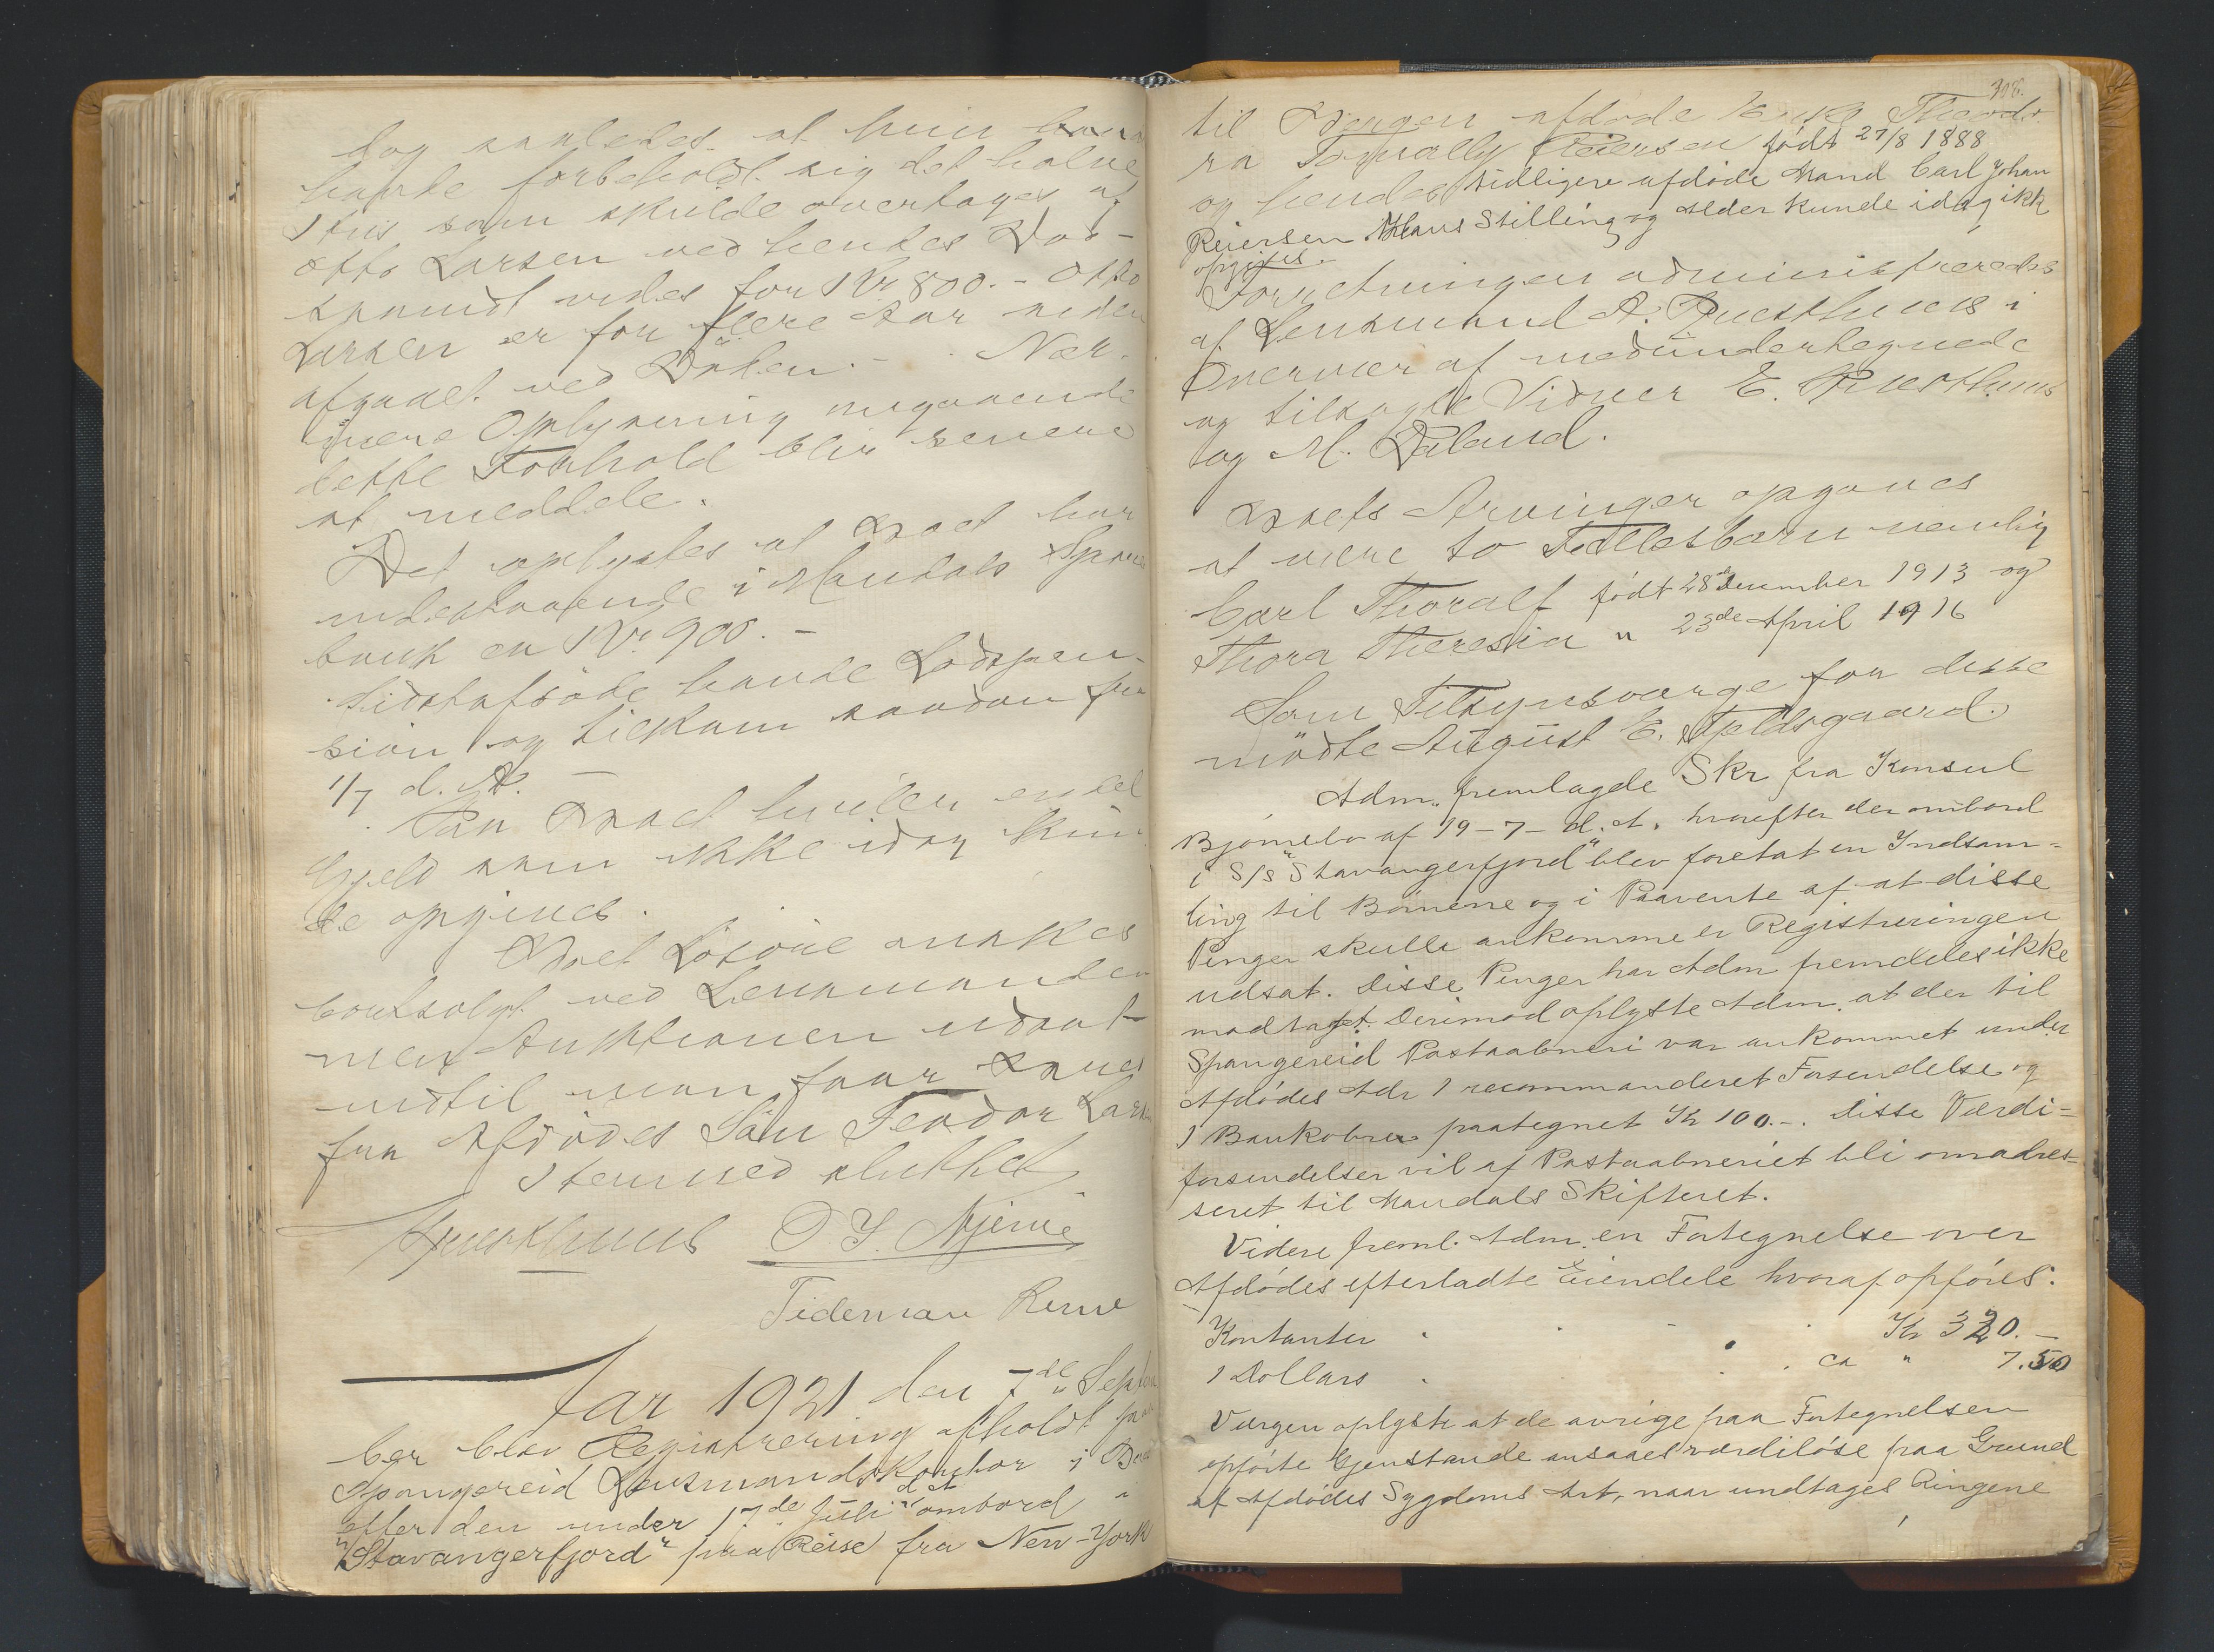 dog saaledes at hun
havde forbeholdt sig det halve
Hus som skulde overtages af
Otto Larsen ved hendes Død-
for Kr 800.- Otto
Larsen er for flere Aar siden
afgaaet ved Døden. - Nær-
mere Oplysning angaaende
dette Forhold blir senere
at meddele.
Det oplystes at Boet har
indestaaende i Mandals Spare
bank ca Kr. 900.-
Sidstafdøde havde Lodspen-
sion og tilkom saadan fra
1/7 d. A. -
Paa Boet hviler endel
Gjeld som ikke idag kun
de opgives.
Boet Løsøre ønskes
bortsolgt ved Lensmanden
men Auktionen udsat
indtil man faar Svar
fra Afdødes Søn Teodor Lars
Hermed sluttet
Qvesthuus O. J. Njerve
Tideman Rerve
Aar 1921 den 7de Septem
ber blev Registrering afholdt paa
Spangereid Lensmandskontor i Bo
efter den under 17de Juli d. A. ombord i
"Stavangerfjord" paa Reise fra New-York
318.
til Bergen afdøde Enke Theodo
ra Reiersen født 27/8 1888
og hendes tidligere afdøde Mand Carl Johan
Reiersen. Hans Stilling og Alder kunde idag ikk
opgives.
Forretningen administreredes
af Lensmand A. Qvesthuus i
Overvær af medundertegnede
og tilkaldte Vidner E. Qvesthuus
og M. Våland.
Boets Arvinger opgaves
at være to Fællesbørn nemlig
Carl Thoralf født 28de December 1913 og
Thora Theresia " 23de April 1916
Som Tilsynsværge for disse
mødte August E. Fjeldsgaard.
Adm. fremlagde Skr fra Konsul
Bjørnebo af 19-7-d. A. hvorefter der ombord
i S/S "Stavangerfjord" blev foretat en Indsam=
ling til Børnene og i Paavente af at disse
Penger skulle ankomme er Registreringen
udsat. Disse Penger har Adm fremdeles ikke
modtaget. Derimod oplyste Adm. at der til
Spangereid Postaabneri var ankommet under
Afdødes Adr 1 recommanderet Forsendelse og
1 Bankobrev paategnet Kr 100.-. Disse Værdi=
forsendelser vil af Postaabneriet bli omadres=
seret til Mandals Skifteret.
Videre freml. Adm. en Fortegnelse over
Afdødes efterladte Eiendele hvoraf opføres:
Kontanter . . . . Kr 320.-
1 Dollars . . . ca " 7.50
Værgen oplyste at de øvrige paa Fortegnelsen
opførte Gjenstande ansaaes værdiløse paa Grund
af Afdødes Sygdoms Art, naar undtages Ringene